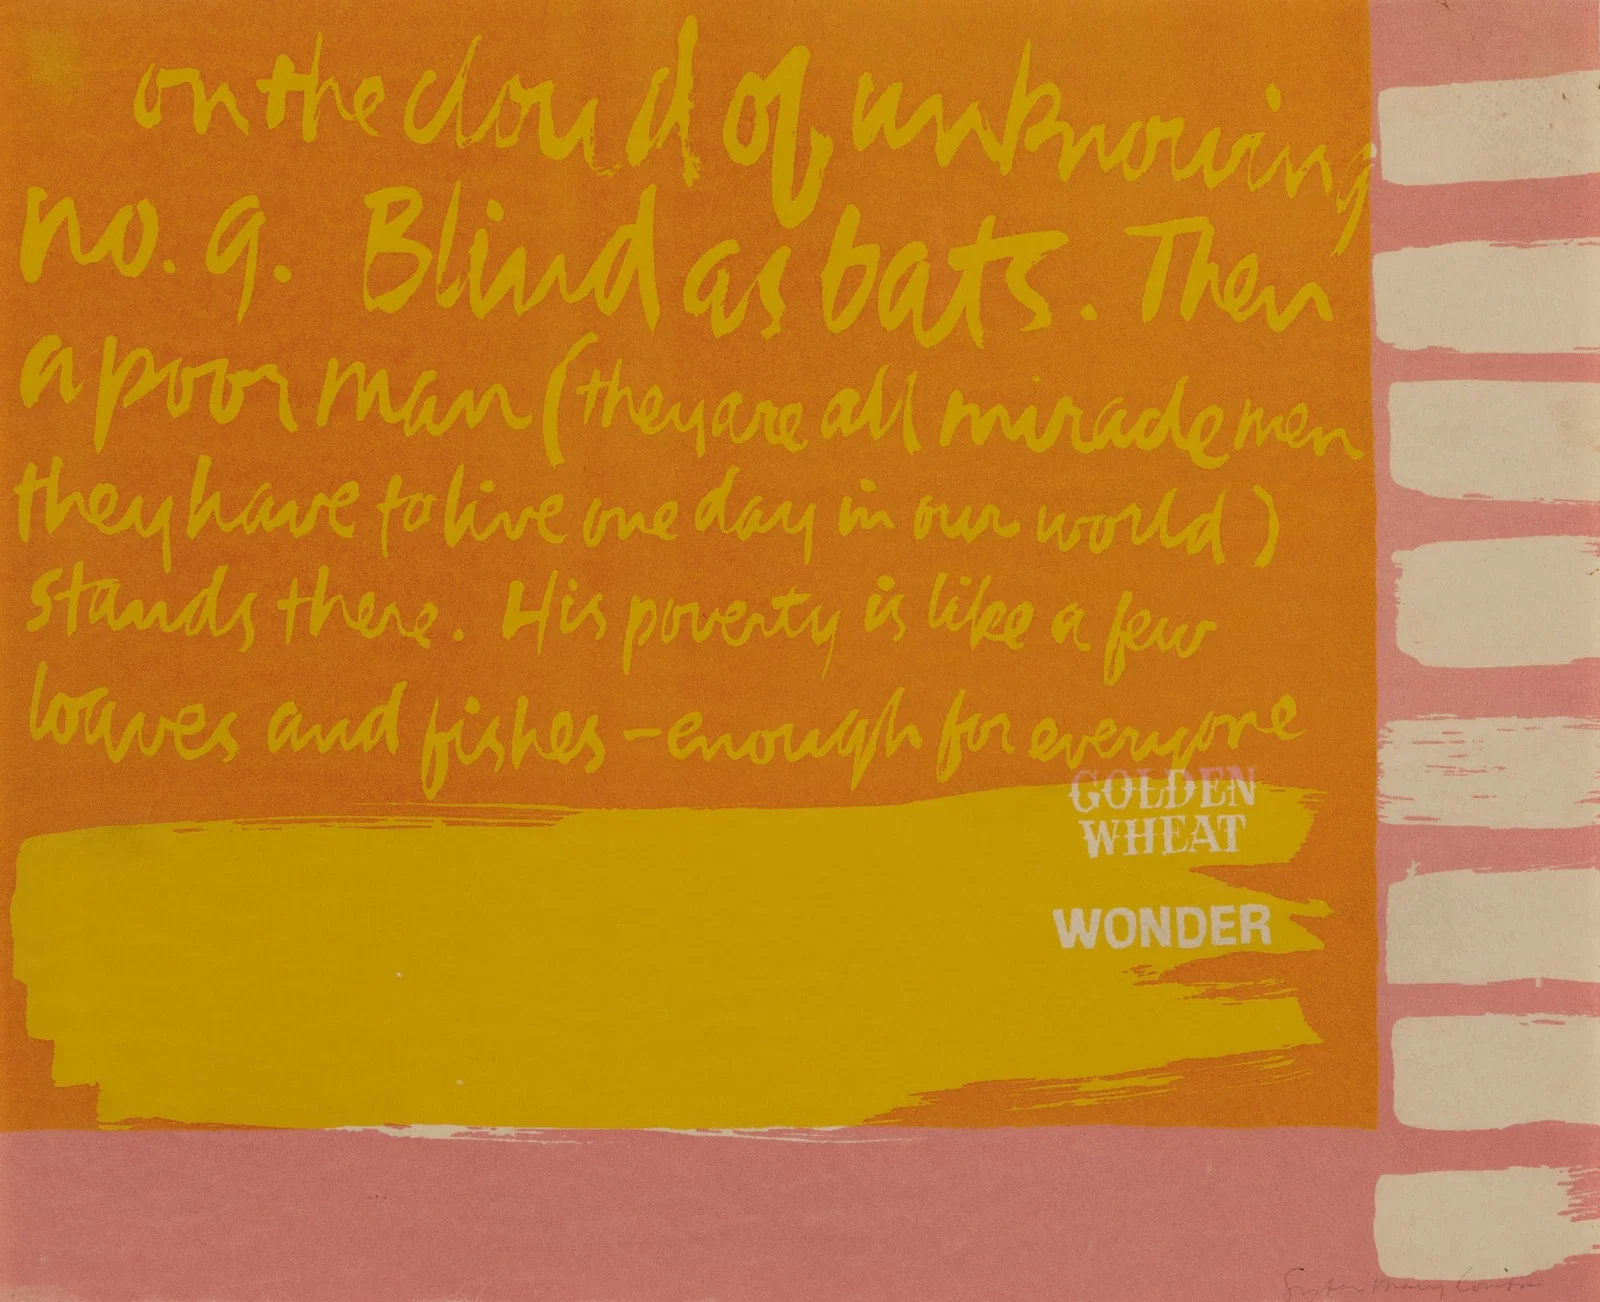 on the cloud of unknowing
no. 9. Blind as bats. Then
a poor man (they are all miracle men
they have to live one day in our world)
stands there. His poverty is like a few
loaves and fishes - enough for everyone
GOLDEN
WHEAT
WONDER
Sister Mary Corita